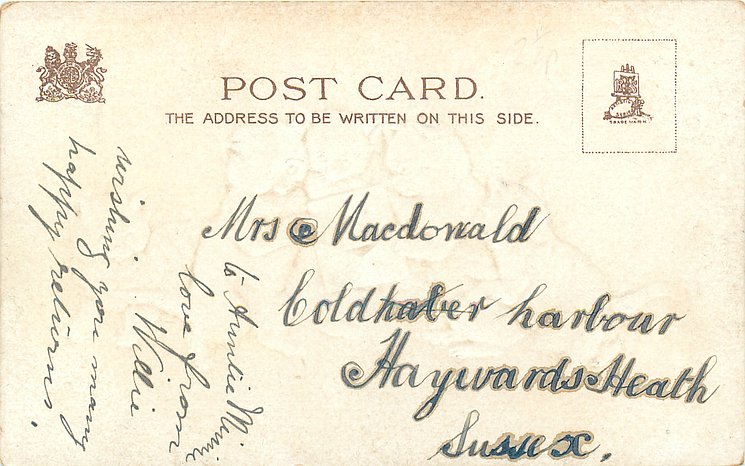 POST CARD.
THE ADDRESS TO BE WRITTEN ON THIS SIDE.
TRADE MARK
Mrs Macdonald
Coldhaber harbour
Haywards Heath
Sussex.
to Auntie Minnie
love from
Willie
wishing you many
happy returns.